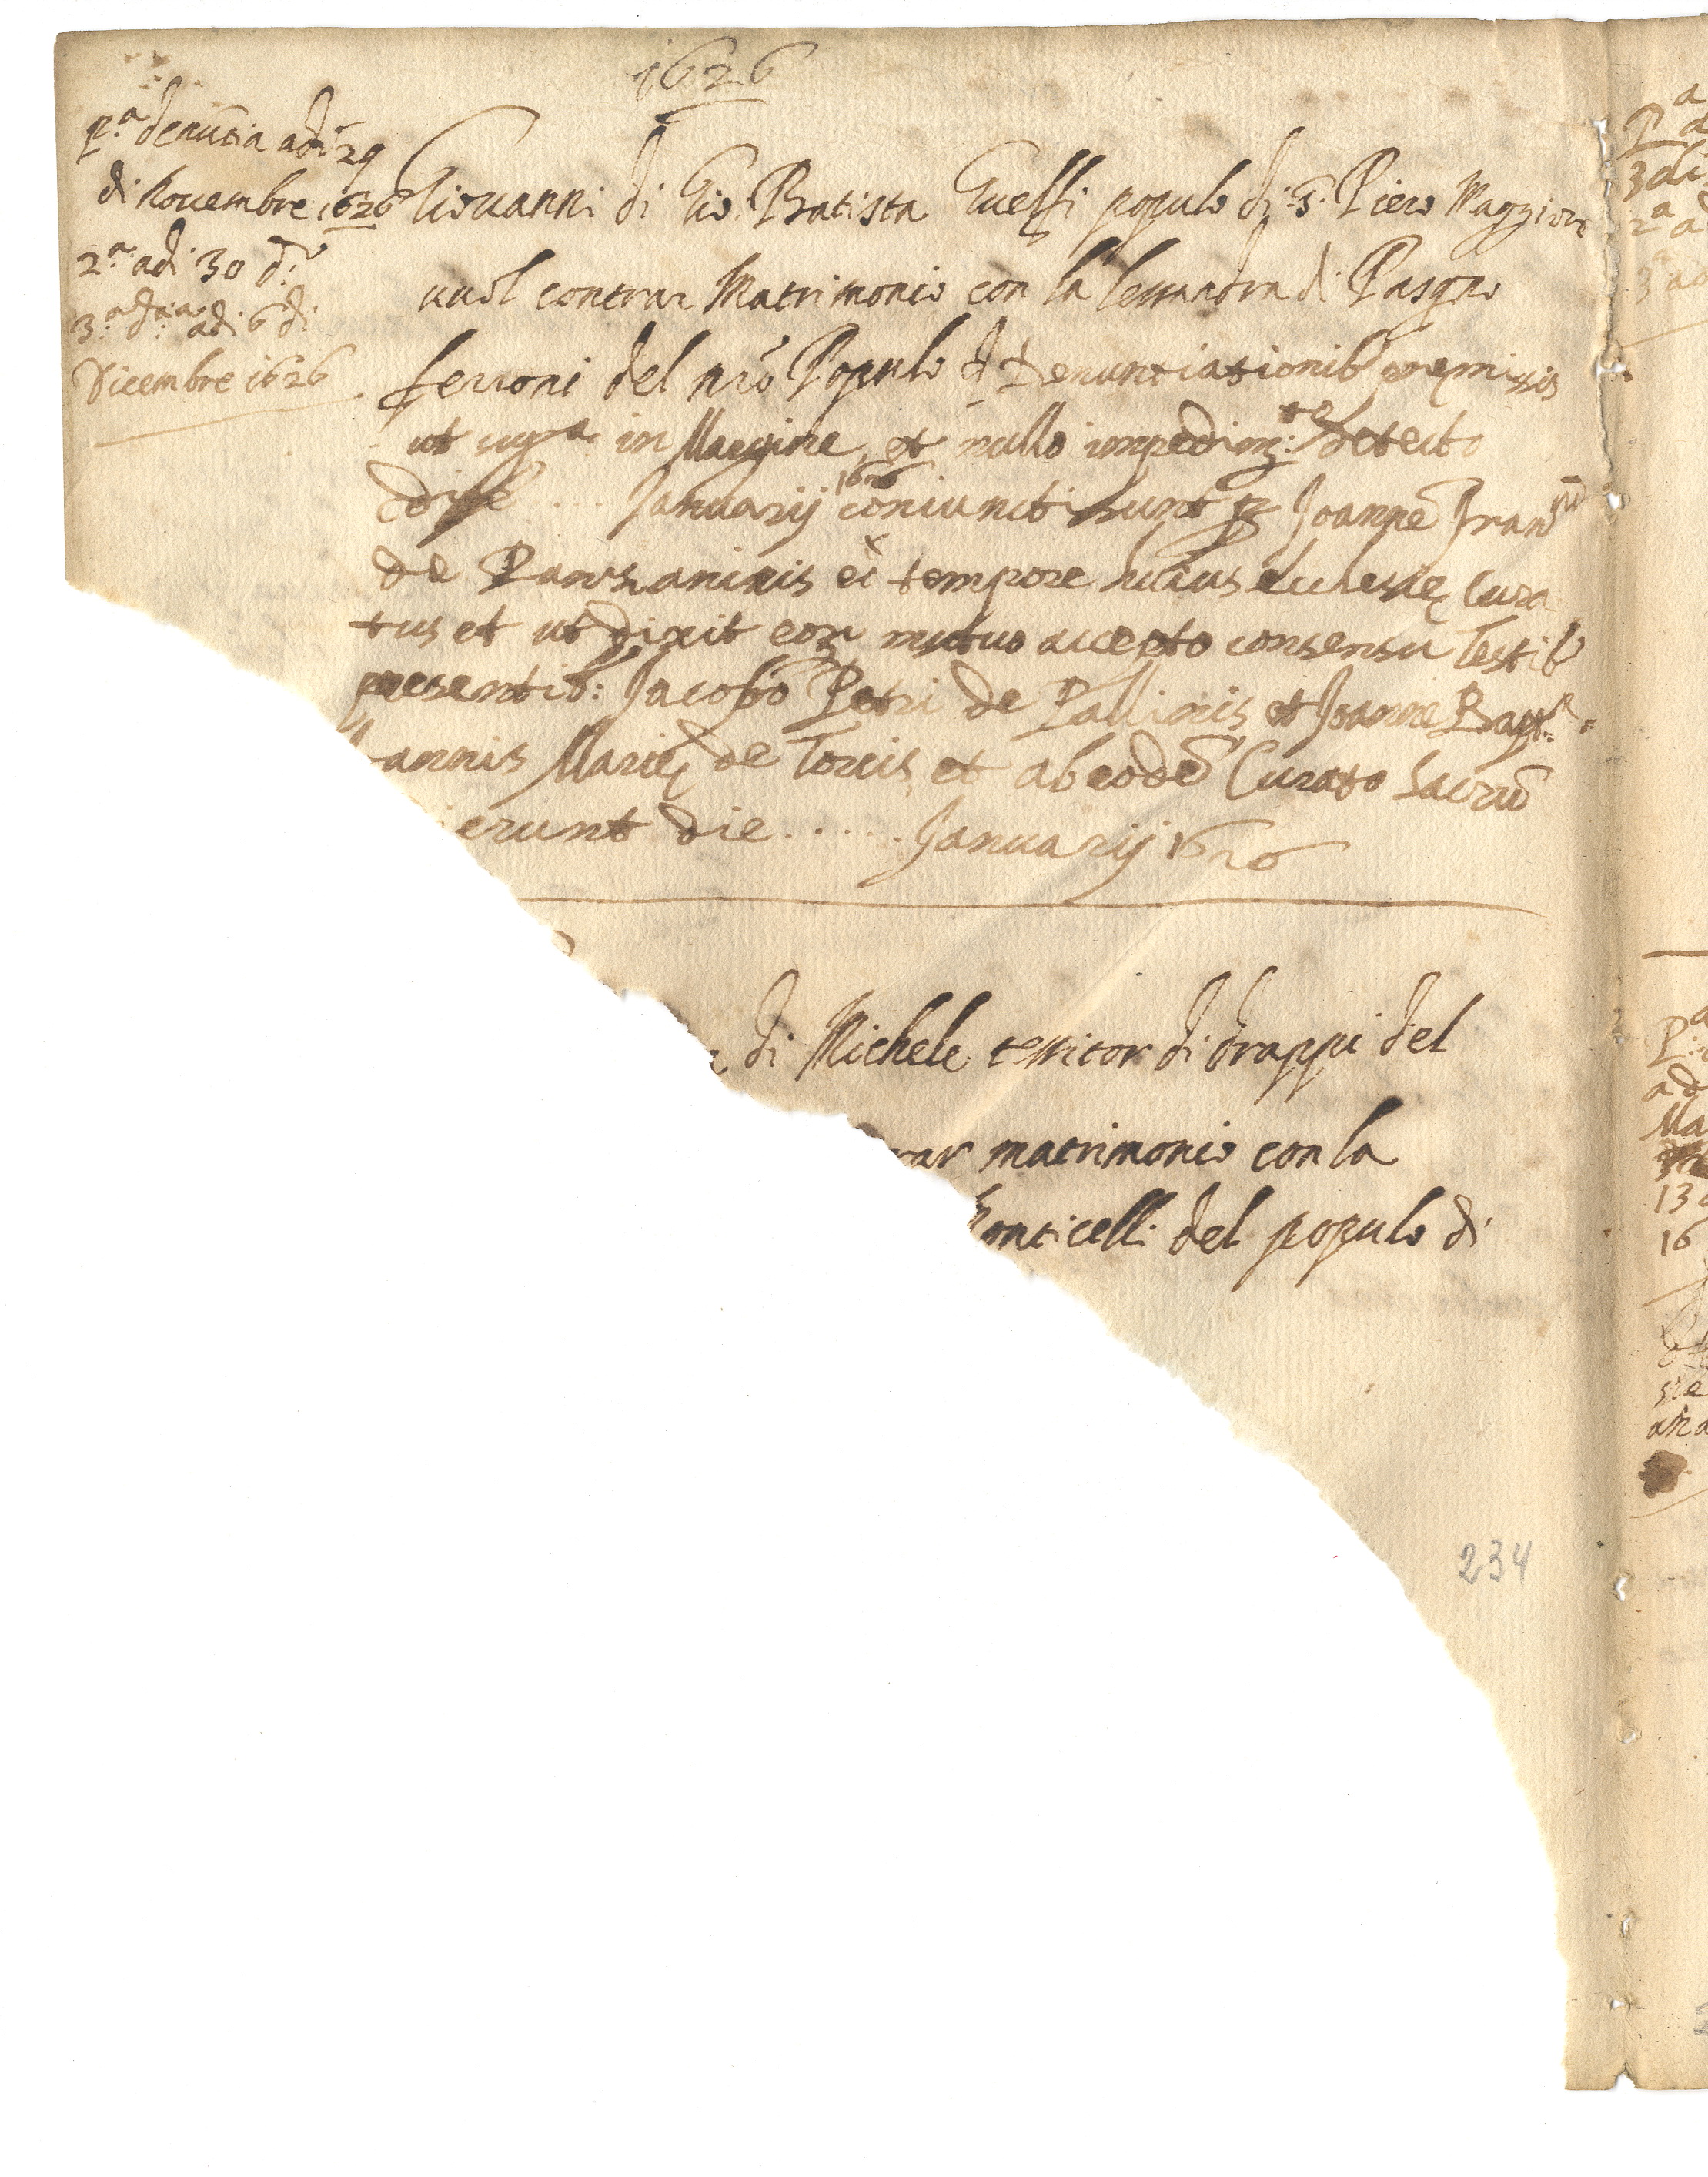 1626
P.a denūtia adi 29
di Nouembre 1626
2.a adi 30 d.o
3.a d.a adi 6 di
Dicembre 1626
Giouanni di Gio. Batista Guelfi populo di S. Piero Maggiore
uuol contrar Matrimonio con la lessandra di Pasqno
ferroni del nr̄o Populo Denuntiationib premissis
ut supra in Margine et nullo impedim:to detecto
die ... Januarij 1626 coniuncti sunt p Joannē Fran
de Panzaninis ei tempore huius ecclesię Cura
tus et ut dixit eor mutuo accepto consensu Testib
presentib: Jacobo Petri de Pallinis et Joanne Bapt.a
annis Marię de Torcis et ab eodē Curato Sacrū
erunt die ...... Januarij 1626
di Michele tessitor di drappi del
rar matrimonio con la
onticelli del populo di
234